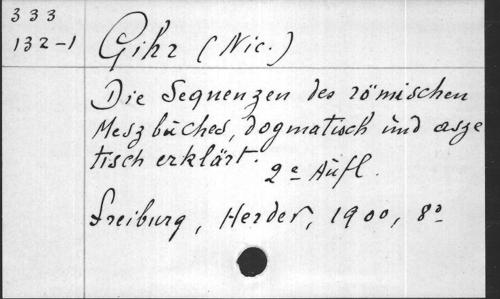 333
132-1
Gihr (Nic.)
Die Sequenzen des römischen
Meszbüches, dogmatisch und asze
tisch erklärt.
2e Aufl.
Freiburg, Herder, 1900, 8º